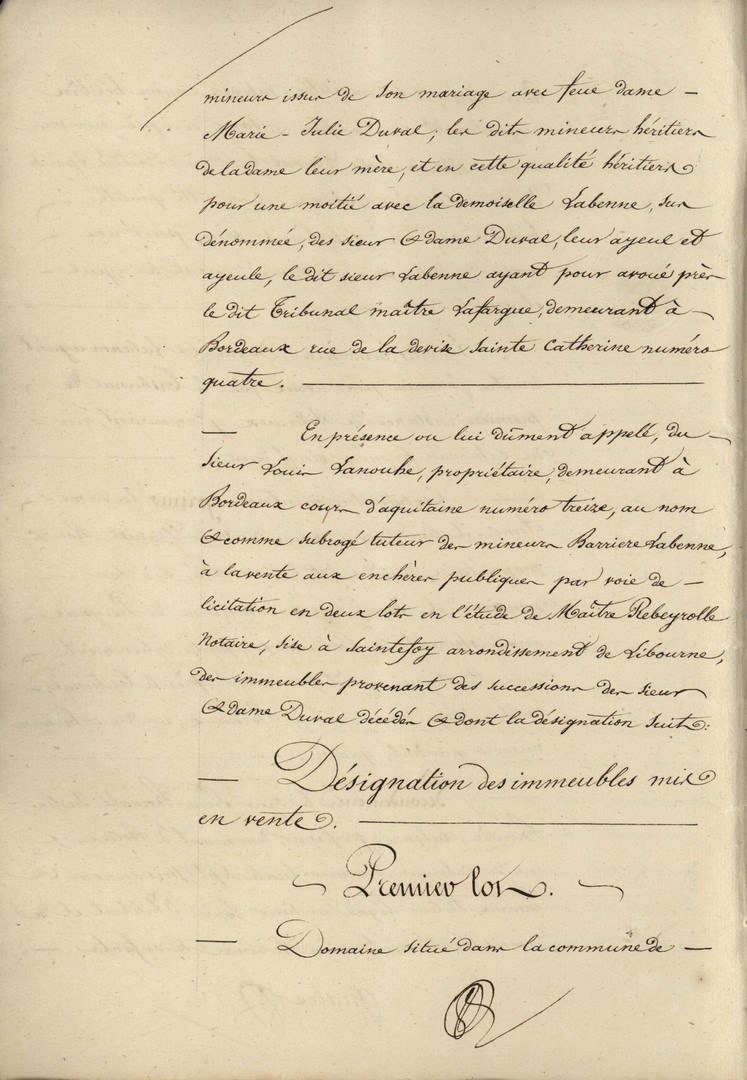 mineurs issus de son mariage avec feue dame —
Marie-Julie Duval; les dits mineurs héritiers
de la dame leur mère, et en cette qualité héritiers
pour une moitié avec la demoiselle Labenne, sus
dénommée, des sieur & dame Duval, leur ayeul et
ayeule, le dit sieur Labenne ayant pour avoué près
le dit Tribunal maître Lafargue, demeurant à —
Bordeaux rue de la devise Sainte Catherine numéro
quatre. —
— En présence ou lui dûment appellé, du —
sieur Louis Lanouhe, propriétaire, demeurant à
Bordeaux cours d'aquitaine numéro treize, au nom
& comme subrogé tuteur des mineurs Barriere Labenne,
à la vente aux enchères publiques par voie de —
licitation en deux lots en l'étude de Maître Rebeyrolle
Notaire, sise à Saintefoy arrondissement de Libourne,
des immeubles provenant des successions des sieur
& dame Duval décédés & dont la désignation suit:
— Désignation des immeubles mis
en vente. —
Premier lot.
— Domaine situé dans la commune de —